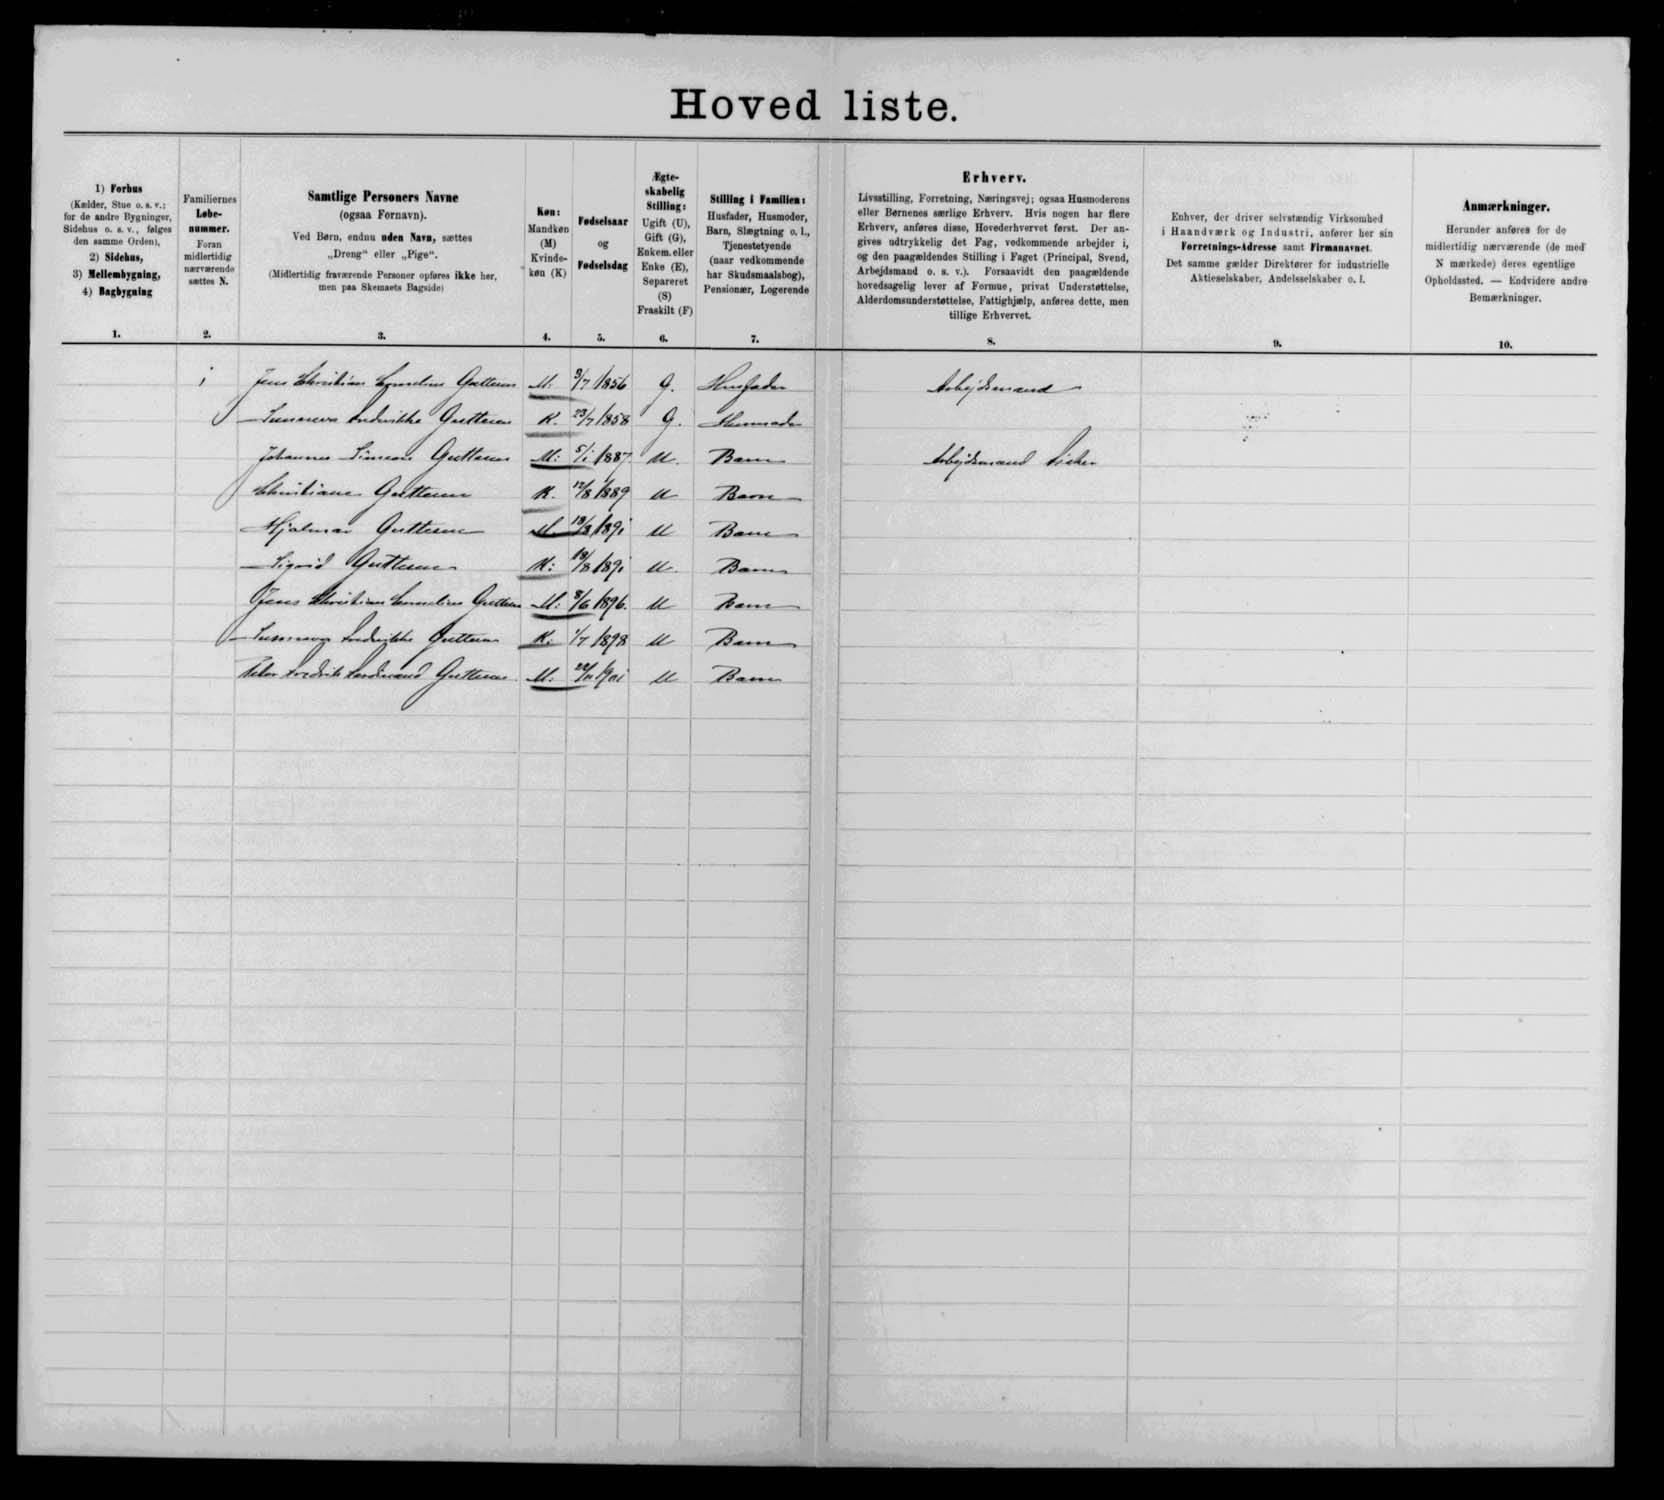 Hoved liste.
1) Forhus
(Kælder, Stue o. s. v.;
for de andre Bygninger,
Sidehus o. s. v., følges
den samme Orden),
2) Sidehus,
3) Mellembygning,
4) Bagbygning
1.
Familiernes
Løbe-
nummer.
Foran
midlertidig
nærværende
sættes N.
2.
Samtlige Personers Navne
(ogsaa Fornavn).
Ved Børn, endnu uden Navn, sættes
„Dreng“ eller „Pige“.
(Midlertidig fraværende Personer opføres ikke her,
men paa Skemaets Bagside)
3.
Køn:
Mandkøn
(M)
Kvinde-
køn (K)
4.
Fødselsaar
og
Fødselsdag
5.
Ægte-
skabelig
Stilling:
Ugift (U),
Gift (G),
Enkem. eller
Enke (E),
Separeret
(S)
Fraskilt (F)
6.
Stilling i Familien:
Husfader, Husmoder,
Barn, Slægtning o. l.,
Tjenestetyende
(naar vedkommende
har Skudsmaalsbog),
Pensionær, Logerende
7.
Erhverv.
Livsstilling, Forretning, Næringsvej; ogsaa Husmoderens
eller Børnenes særlige Erhverv. Hvis nogen har flere
Erhverv, anføres disse, Hovederhvervet først. Der an-
gives udtrykkelig det Fag, vedkommende arbejder i,
og den paagældendes Stilling i Faget (Principal, Svend,
Arbejdsmand o. s. v.). Forsaavidt den paagældende
hovedsagelig lever af Formue, privat Understøttelse,
Alderdomsunderstøttelse, Fattighjælp, anføres dette, men
tillige Erhvervet.
8.
Enhver, der driver selvstændig Virksomhed
i Haandværk og Industri, anfører her sin
Forretnings-Adresse samt Firmanavnet.
Det samme gælder Direktører for industrielle
Aktieselskaber, Andelsselskaber o. l.
9.
Anmærkninger.
Herunder anføres for de
midlertidig nærværende (de med
N mærkede) deres egentlige
Opholdssted. — Endvidere andre
Bemærkninger.
10.
1 Jens Christian Cornelius Guttesen M. 9/7 1856 G. Husfader Arbejdsmand
Sunneva Fredrikke Guttesen K. 23/7 1858 G. Husmoder
Johannes Simeon Guttesen M. 5/1 1887 U. Barn Arbejdsmand Fisker
Christiane Guttesen K. 12/8 1889 U Barn
Hjalmar Guttesen M. 18/8 1891 U Barn
Sigrid Guttesen K. 18/8 1891 U. Barn
Jens Christian Cornelius Guttesen M. 8/6 1896. U Barn
Sunneva Fredrikke Guttesen K. 1/7 1898 U Barn
Peter Fredrik Ferdinand Guttesen M. 22/11 1901 U Barn